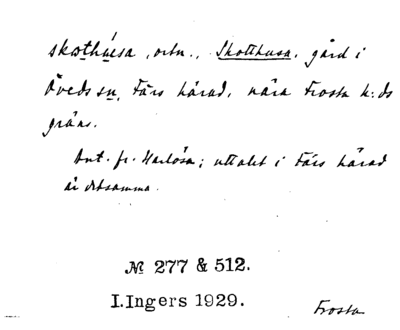 skothúsa, ortn., Skotthusa, gård i
Öveds sn, Färs härad, nära Frosta h:ds
gräns.
Ant. fr. Harlösa; uttalet i Färs härad
är detsamma.
№ 277 & 512.
I. Ingers 1929.
Frosta